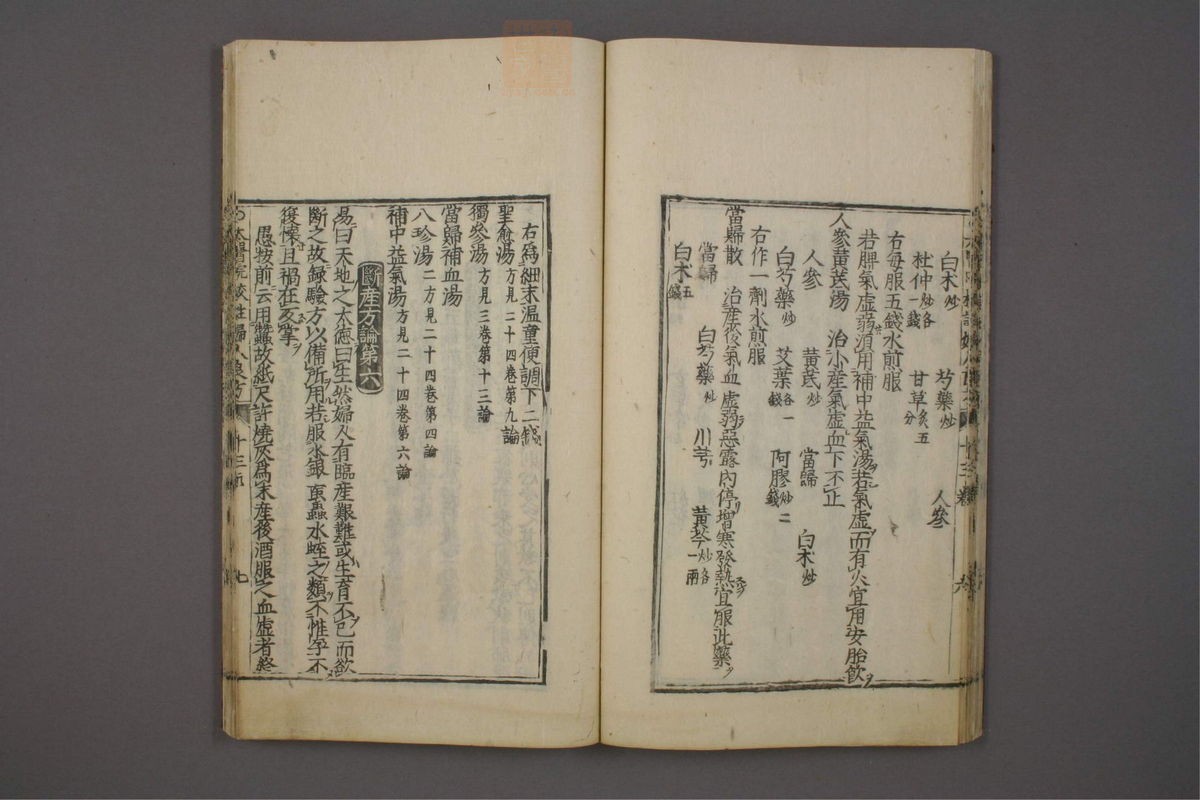 白朮炒 芍藥炒 人參
杜仲炒各一錢 甘草炙五分
右每服五錢水煎服
若脾氣虛弱須用補中益氣湯若氣虛而有火宜用安胎飲
人參黃芪湯 治小產氣虛血下不止
人參 黃芪炒 當歸 白朮炒
白芍藥炒 艾葉各一錢 阿膠炒二錢
右作一劑水煎服
當歸散 治產後氣血虛弱惡露內停增寒發熱宜服此藥
當歸 白芍藥炒 川芎 黃芩炒各一兩
白朮五錢
右為細末溫童便調下二錢
聖愈湯方見二十四卷第九論
獨參湯方見三卷第十三論
當歸補血湯
八珍湯二方見二十四卷第四論
補中益氣湯方見二十四卷第六論
斷產方論第六
易曰天地之大德曰生然婦人有臨產艱難或生育不已而欲
斷之故錄驗方以備所用若服水銀䖟蟲水蛭之類不惟孕不
復懷且禍在反掌
愚按前云用蠶故紙尺許燒灰為末產後酒服之血虛者終
太醫院校註婦人良方 十三 七